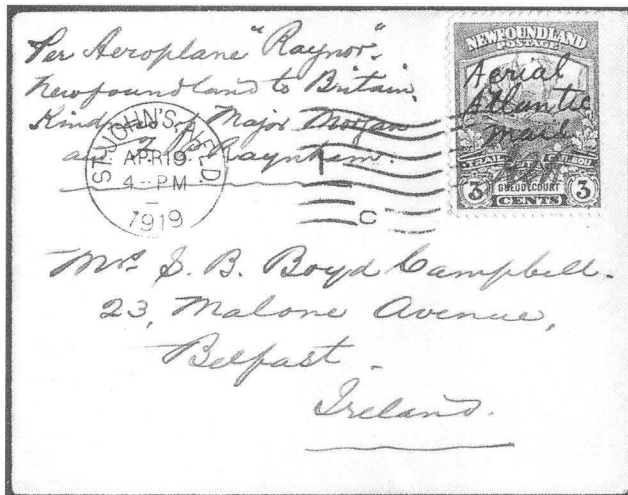 Per Aeroplane "Raynor".
Newfoundland to Britain.
Kindness of Major Morgan
and Mr Raynham.
ST. JOHN'S, NFLD.
APR 19
4-PM
1919
C
NEWFOUNDLAND
POSTAGE
Aerial
Atlantic
Mail
TRAIL OF THE CARIBOU
GUEUDECOURT
3 CENTS 3
Mrs S. B. Boyd Campbell.
23, Malone Avenue,
Belfast.
Ireland.